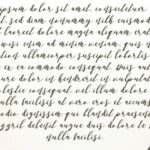 ipsum dolor sit amet, consectetuer
sed diam nonummy nibh euismod
laoreet dolore magna aliquam erat
wisi enim ad minim veniam, quis
tion ullamcorper suscipit lobortis
ex ea commodo consequat. Duis aute
dolor in hendrerit in vulputate
olestie consequat, vel illum dolore
nulla facilisis at vero eros et accumsan
odio dignissim qui blandit praesent
zzril delenit augue duis dolore te
nulla facilisi.